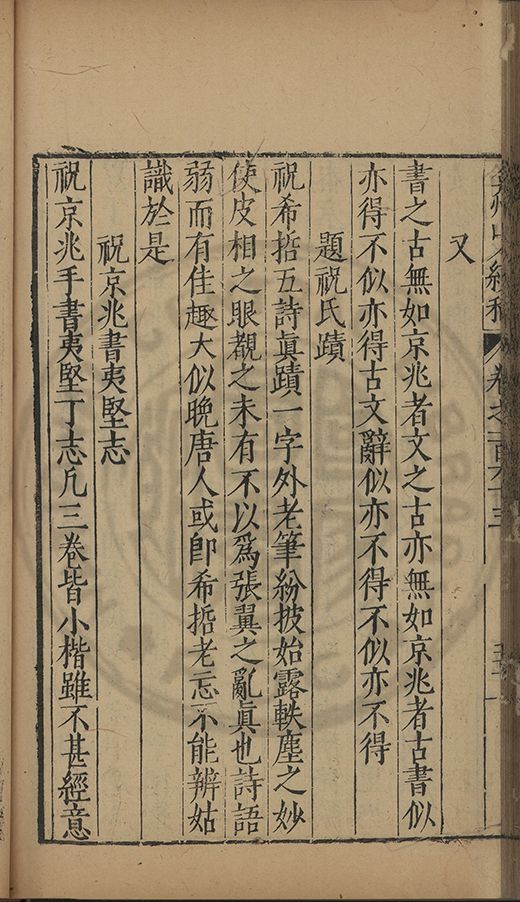 又
書之古無如京兆者文之古亦無如京兆者古書似
亦得不似亦得古文辭似亦不得不似亦不得
題祝氏蹟
祝希哲五詩眞蹟一字外老筆紛披始露軼塵之妙
使皮相之眼覩之未有不以爲張翼之亂眞也詩語
弱而有佳趣大似晚唐人或卽希哲老忘不能辨姑
識於是
祝京兆書夷堅志
祝京兆手書夷堅丁志凡三卷皆小楷雖不甚經意